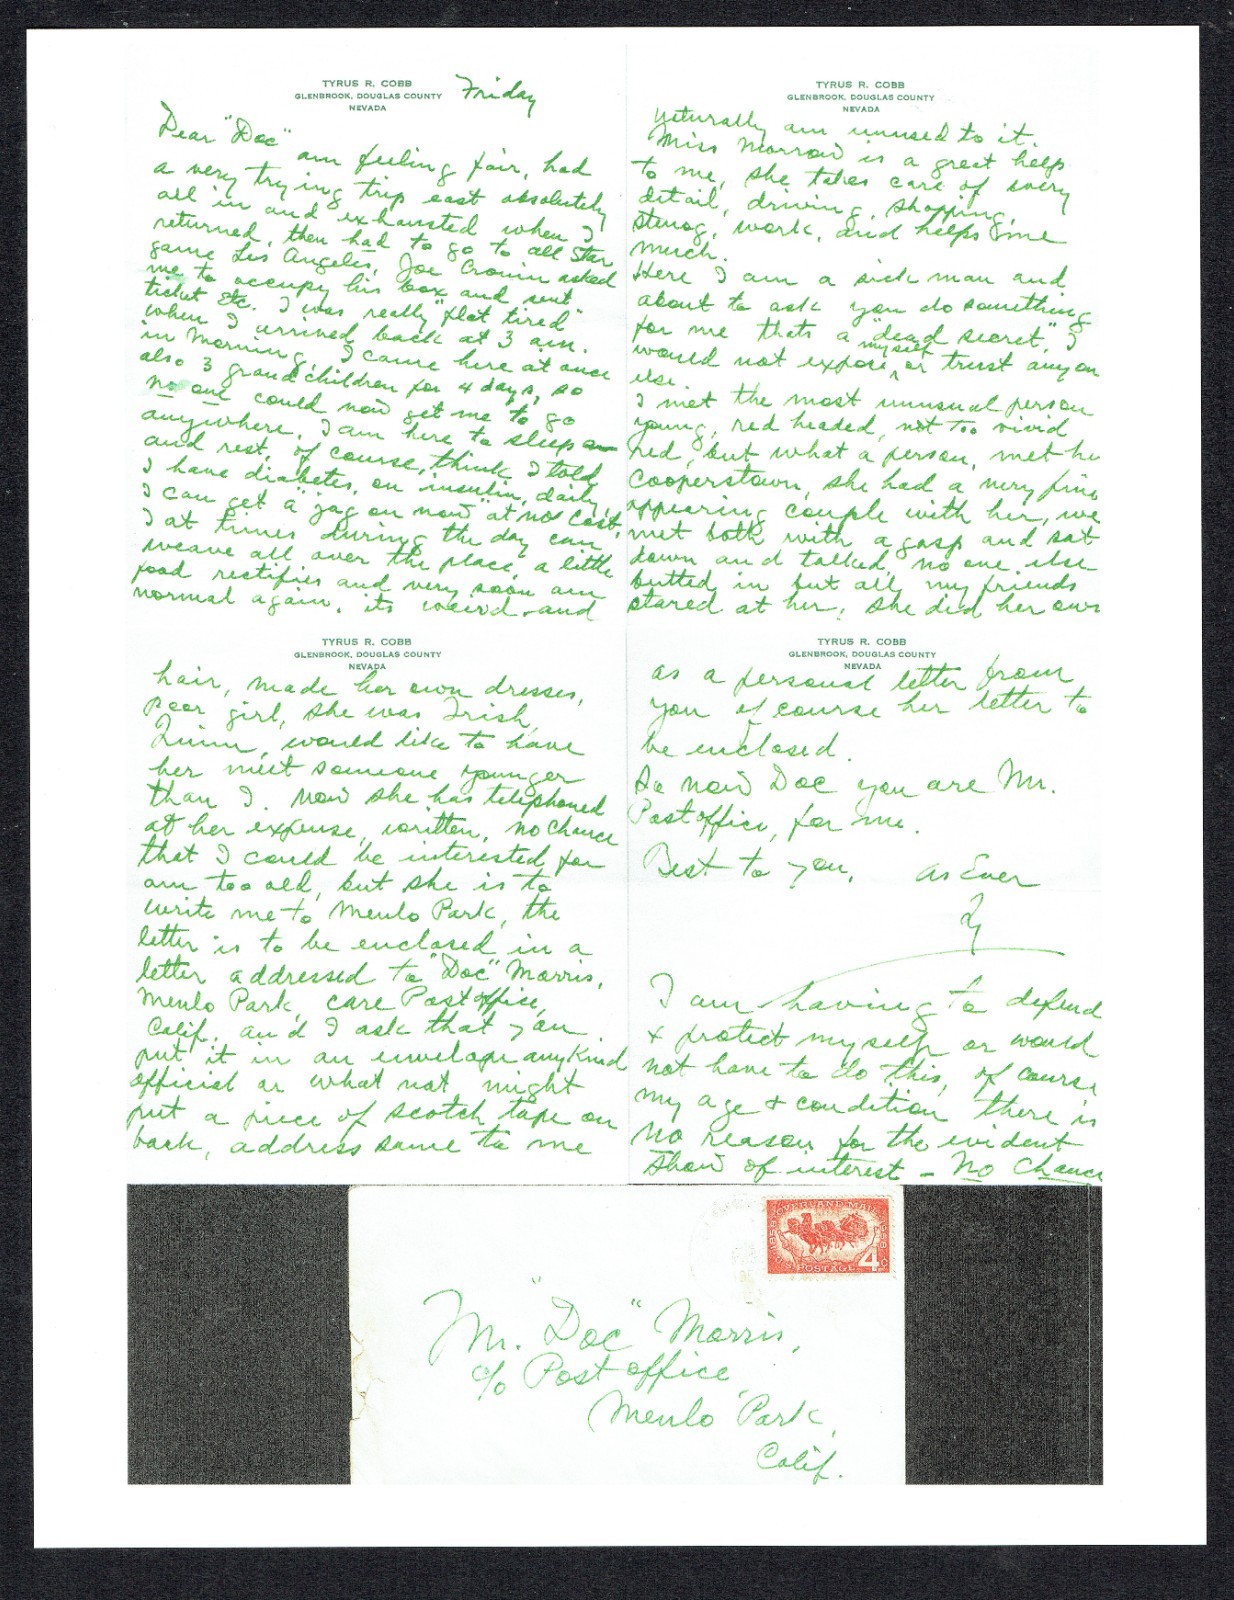 TYRUS R. COBB
GLENBROOK, DOUGLAS COUNTY
NEVADA
Friday
Dear "Doc" am feeling fair, had
a very trying trip east absolutely
all in and exhausted when I
returned, then had to go to all Star
game Los Angeles, Joe Cronin asked
me to occupy his box and sent
ticket etc. I was really "flat tired"
when I arrived back at 3 am.
in morning, I came here at once
also 3 grandchildren for 4 days, so
no one could now get me to go
anywhere. I am here to sleep
and rest, of course, think I told
I have diabetes, on insulin, daily,
I can get a "jag on now" at no cost,
I at times during the day can
weave all over the place, a little
food rectifies and very soon am
normal again. its weird and
TYRUS R. COBB
GLENBROOK, DOUGLAS COUNTY
NEVADA
naturally am unused to it.
Miss Morrow is a great help
to me, she takes care of every
detail, driving, shopping,
stenog, work, and helps me
much.
Here I am a sick man and
about to ask you do something
for me thats a "dead secret", I
would not expose myself or trust anyon
else.
I met the most unusual person
young, red headed, not too vivid
red, but what a person, met he
Cooperstown, she had a very fine
appearing couple with her, we
met both with a gasp and sat
down and talked, no one else
butted in but all my friends
stared at her, she did her own
TYRUS R. COBB
GLENBROOK, DOUGLAS COUNTY
NEVADA
hair, made her own dresses,
poor girl, she was Irish,
Quinn, would like to have
her meet someone younger
than I. now she has telephoned
at her expense, written, no chance
that I could be interested for
am too old, but she is to
write me to Menlo Park, the
letter is to be enclosed in a
letter addressed to "Doc" Morris,
Menlo Park, care Post office,
Calif. and I ask that you
put it in an envelope any kind
official or what not might
put a piece of scotch tape on
back, address same to me
TYRUS R. COBB
GLENBROOK, DOUGLAS COUNTY
NEVADA
as a personal letter from
you of course her letter to
be enclosed.
So now Doc you are Mr.
Post office, for me.
Best to you, as Ever
Ty
I am having to defend
& protect myself or would
not have to do this, of course
my age & condition there is
no reason for the evident
show of interest - No Chance
1858 OVERLAND MAIL 1958
U.S. POSTAGE 4¢
Mr. "Doc" Morris,
c/o Post office
Menlo Park,
Calif.